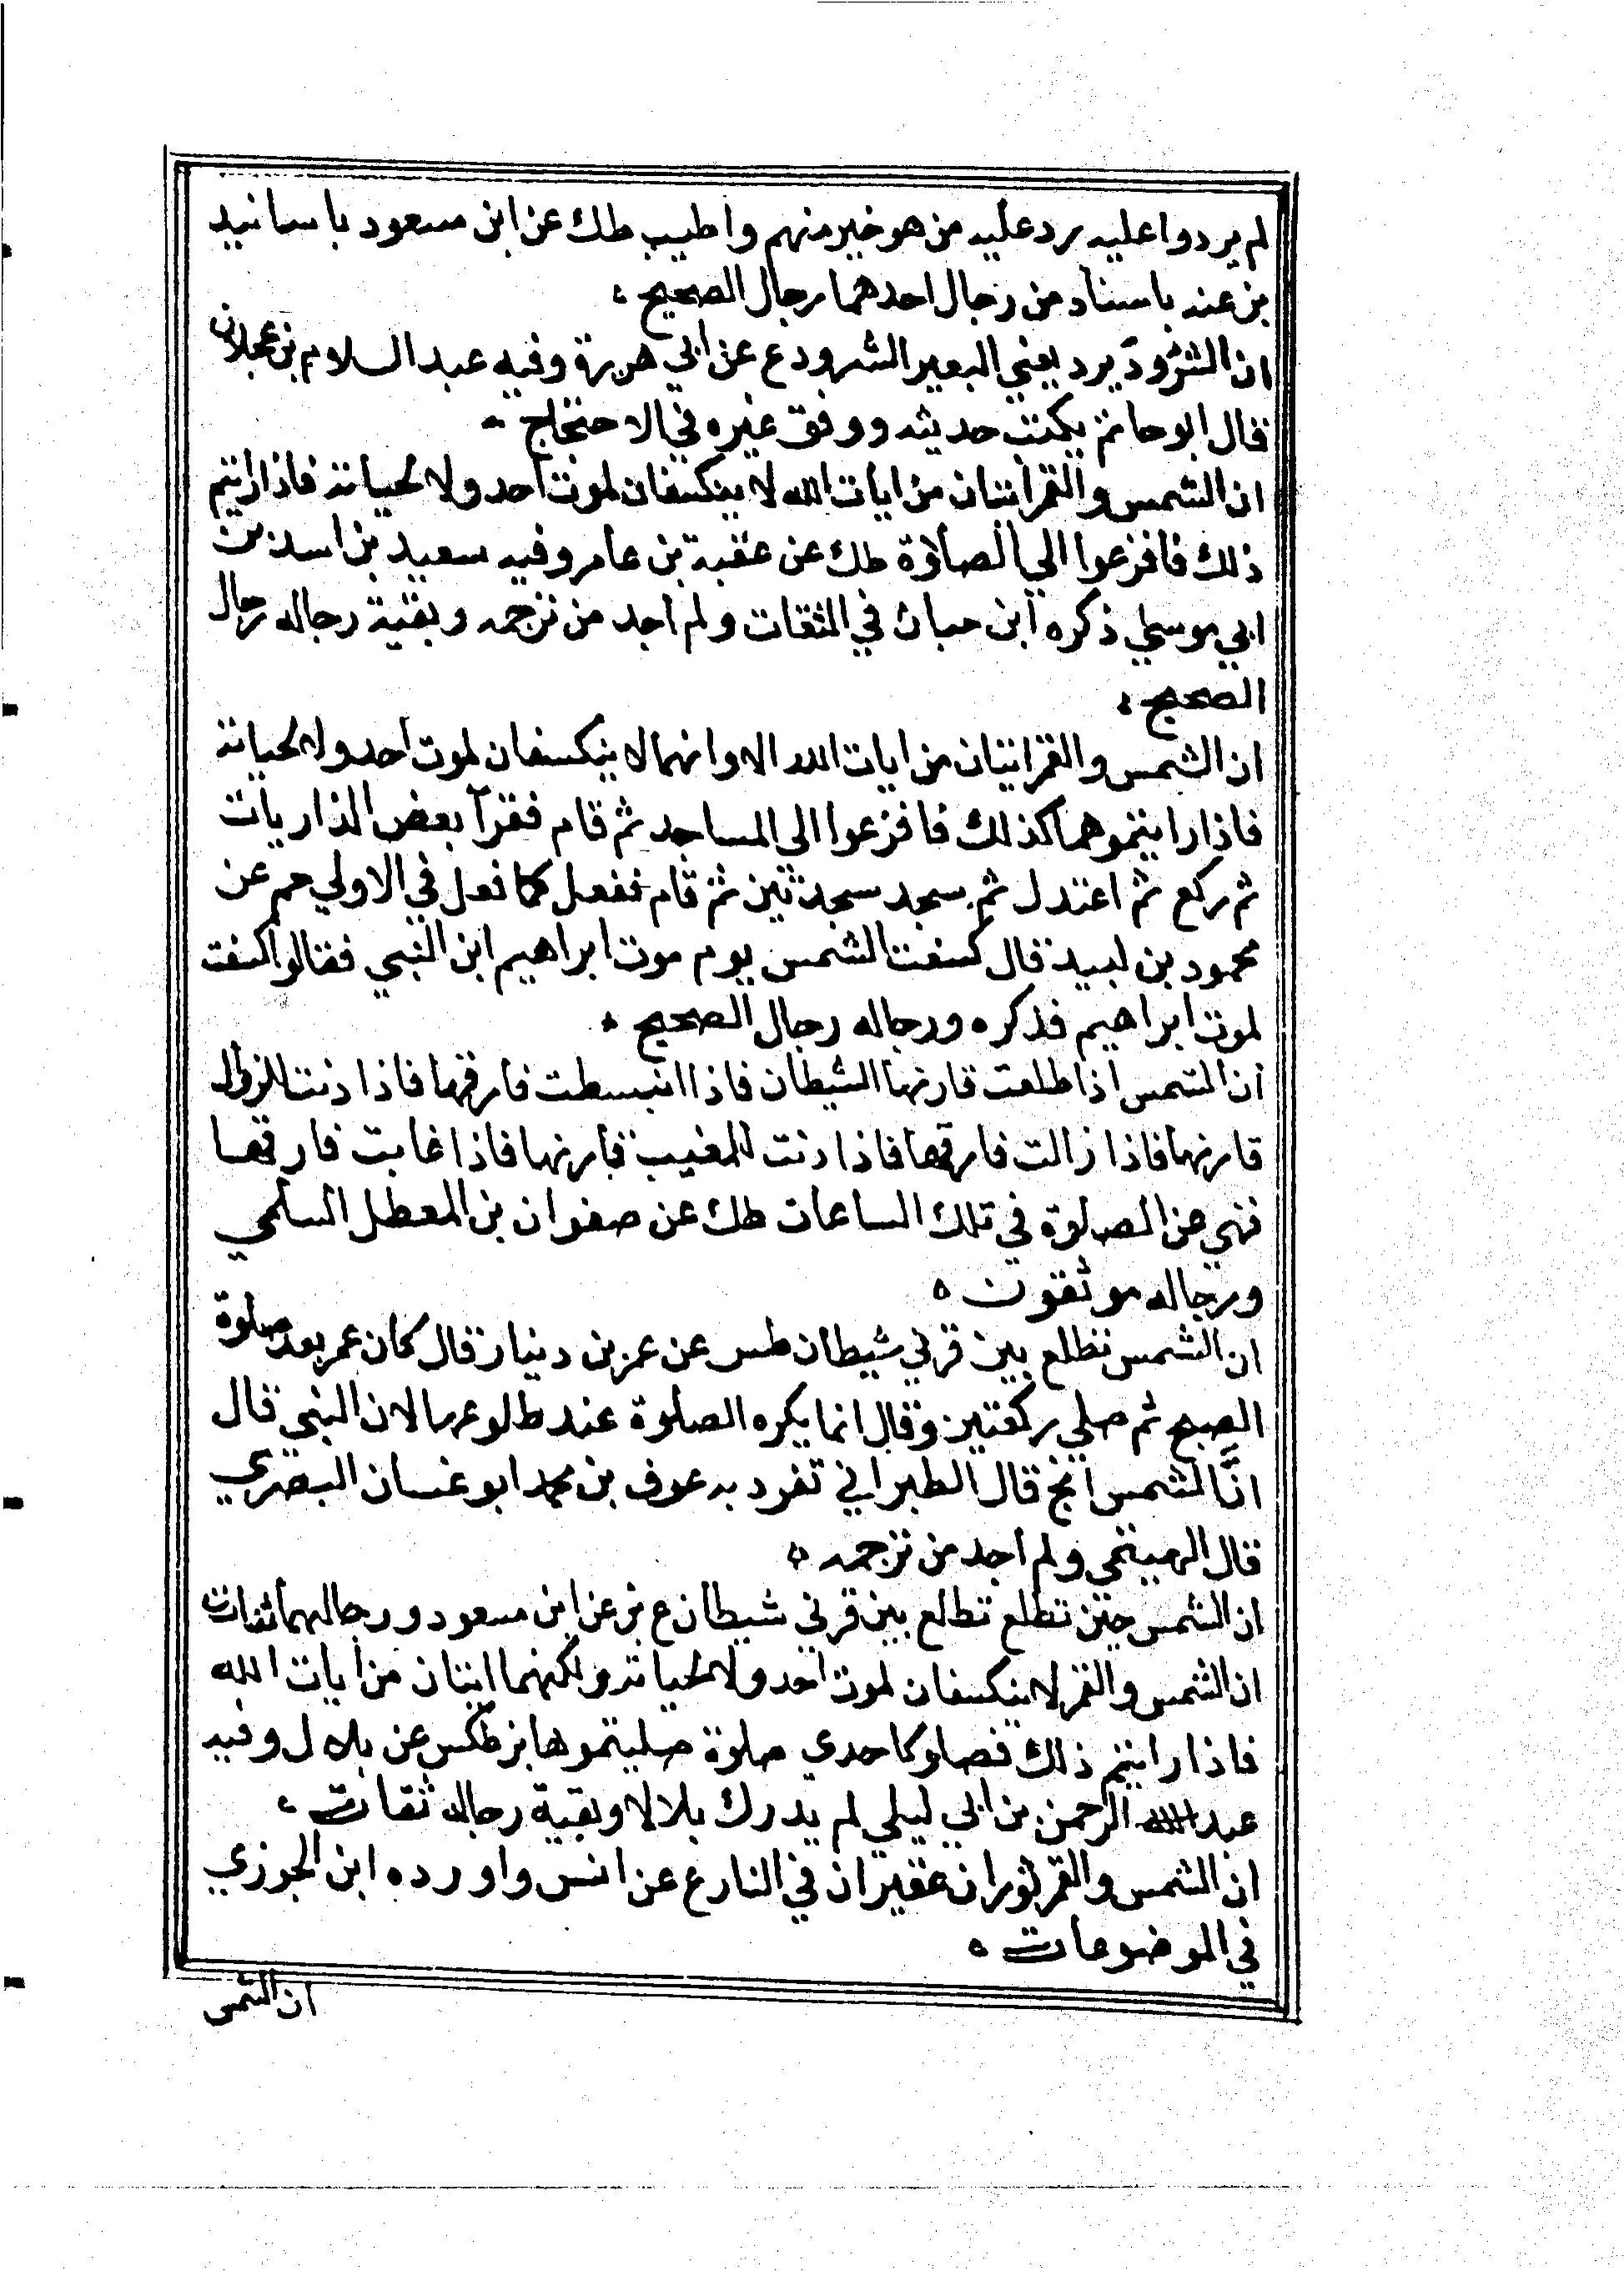 لم يردوا عليه يرد عليه من هو خير منهم واطيب طك عن ابن مسعود باسانيد
بز عنه باسناد من رجال احدهما رجال الصحيح
ان الشرود يرد يعني البعير الشرود ع عن ابي هريرة وفيه عبد السلام بن عجلان
قال ابو حاتم يكتب حديثه ووفق غيره في الاحتجاج
ان الشمس والقمر ايتان من ايات الله لا ينكسفان لموت احد ولا لحياته فاذا رايتم
ذلك فافزعوا الي الصلاة طك عن عقبة بن عامر وفيه سعيد بن اسد بن
ابي موسي ذكره ابن حبان في الثقات ولم اجد من ترجمه وبقية رجاله رجال
الصحيح
ان الشمس والقمر ايتان من ايات الله الا وانهما لا ينكسفان لموت احد ولا لحياته
فاذا رايتموهما كذلك فافزعوا الى المساجد ثم قام فقرآ بعض الذاريات
ثم ركع ثم اعتدل ثم سجد سجدتين ثم قام ففعل كما فعل في الاولي حم عن
محمود بن لبيد قال كسفت الشمس يوم موت ابراهيم ابن النبي فقالوا كسفت
لموت ابراهيم فذكره ورجاله رجال الصحيح
ان الشمس اذا طلعت قارنها الشيطان فاذا انبسطت فارقها فاذا دنت للزوال
قارنها فاذا زالت فارقها فاذا دنت للمغيب قارنها فاذا غابت فارقها
فنهي عن الصلوة في تلك الساعات طك عن صفوان بن المعطل السلمي
ورجاله موثقون
ان الشمس تطلع بين قرني شيطان طس عن عمر بن دينار قال كان عمر بعد صلوة
الصبح ثم صلي ركعتين وقال انما يكره الصلوة عند طلوعها لان النبي قال
انَّ الشمس الخ قال الطبراني تفرد به عوف بن محمد ابو غسان البصري
قال الهيثمي ولم اجد من ترجمه
ان الشمس حين تطلع تطلع بين قرني شيطان ع بز عن ابن مسعود ورجالهما ثقات
ان الشمس والقمر لا ينكسفان لموت احد ولا لحياته ولكنهما ايتان من ايات الله
فاذا رايتم ذلك فصلوا كاحدي صلوة صليتموها بز طكس عن بلال وفيه
عبد الرحمن بن ابي ليلي لم يدرك بلالا وبقية رجاله ثقات
ان الشمس والقمر ثوران عقيران في النار ع عن انس واورده ابن الجوزي
في الموضوعات
ان الشمس